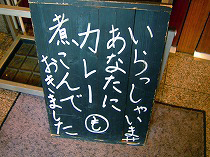 いらっしゃいませ
あなたに、
カレー
煮こんで
おきました